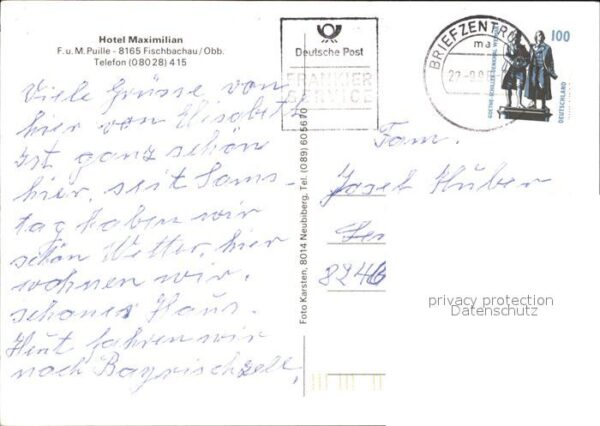 Hotel Maximilian
F. u. M. Puille - 8165 Fischbachau/Obb.
Telefon (08028) 415
Viele Grüsse von
hier von Elisabeth
Ist ganz schön
hier, seit Sams-
tag haben wir
schön Wetter, hier
wohnen wir,
schönes Haus.
Heut fahren wir
nach Bayrischzell.
Foto Karsten, 8014 Neubiberg, Tel. (089) 605670
Deutsche Post
FRANKIER
SERVICE
BRIEFZENTRUM
ma
100
GOETHE-SCHILLER-DENKMAL
DEUTSCHLAND
Fam.
Josef Huber
8246
privacy protection
Datenschutz